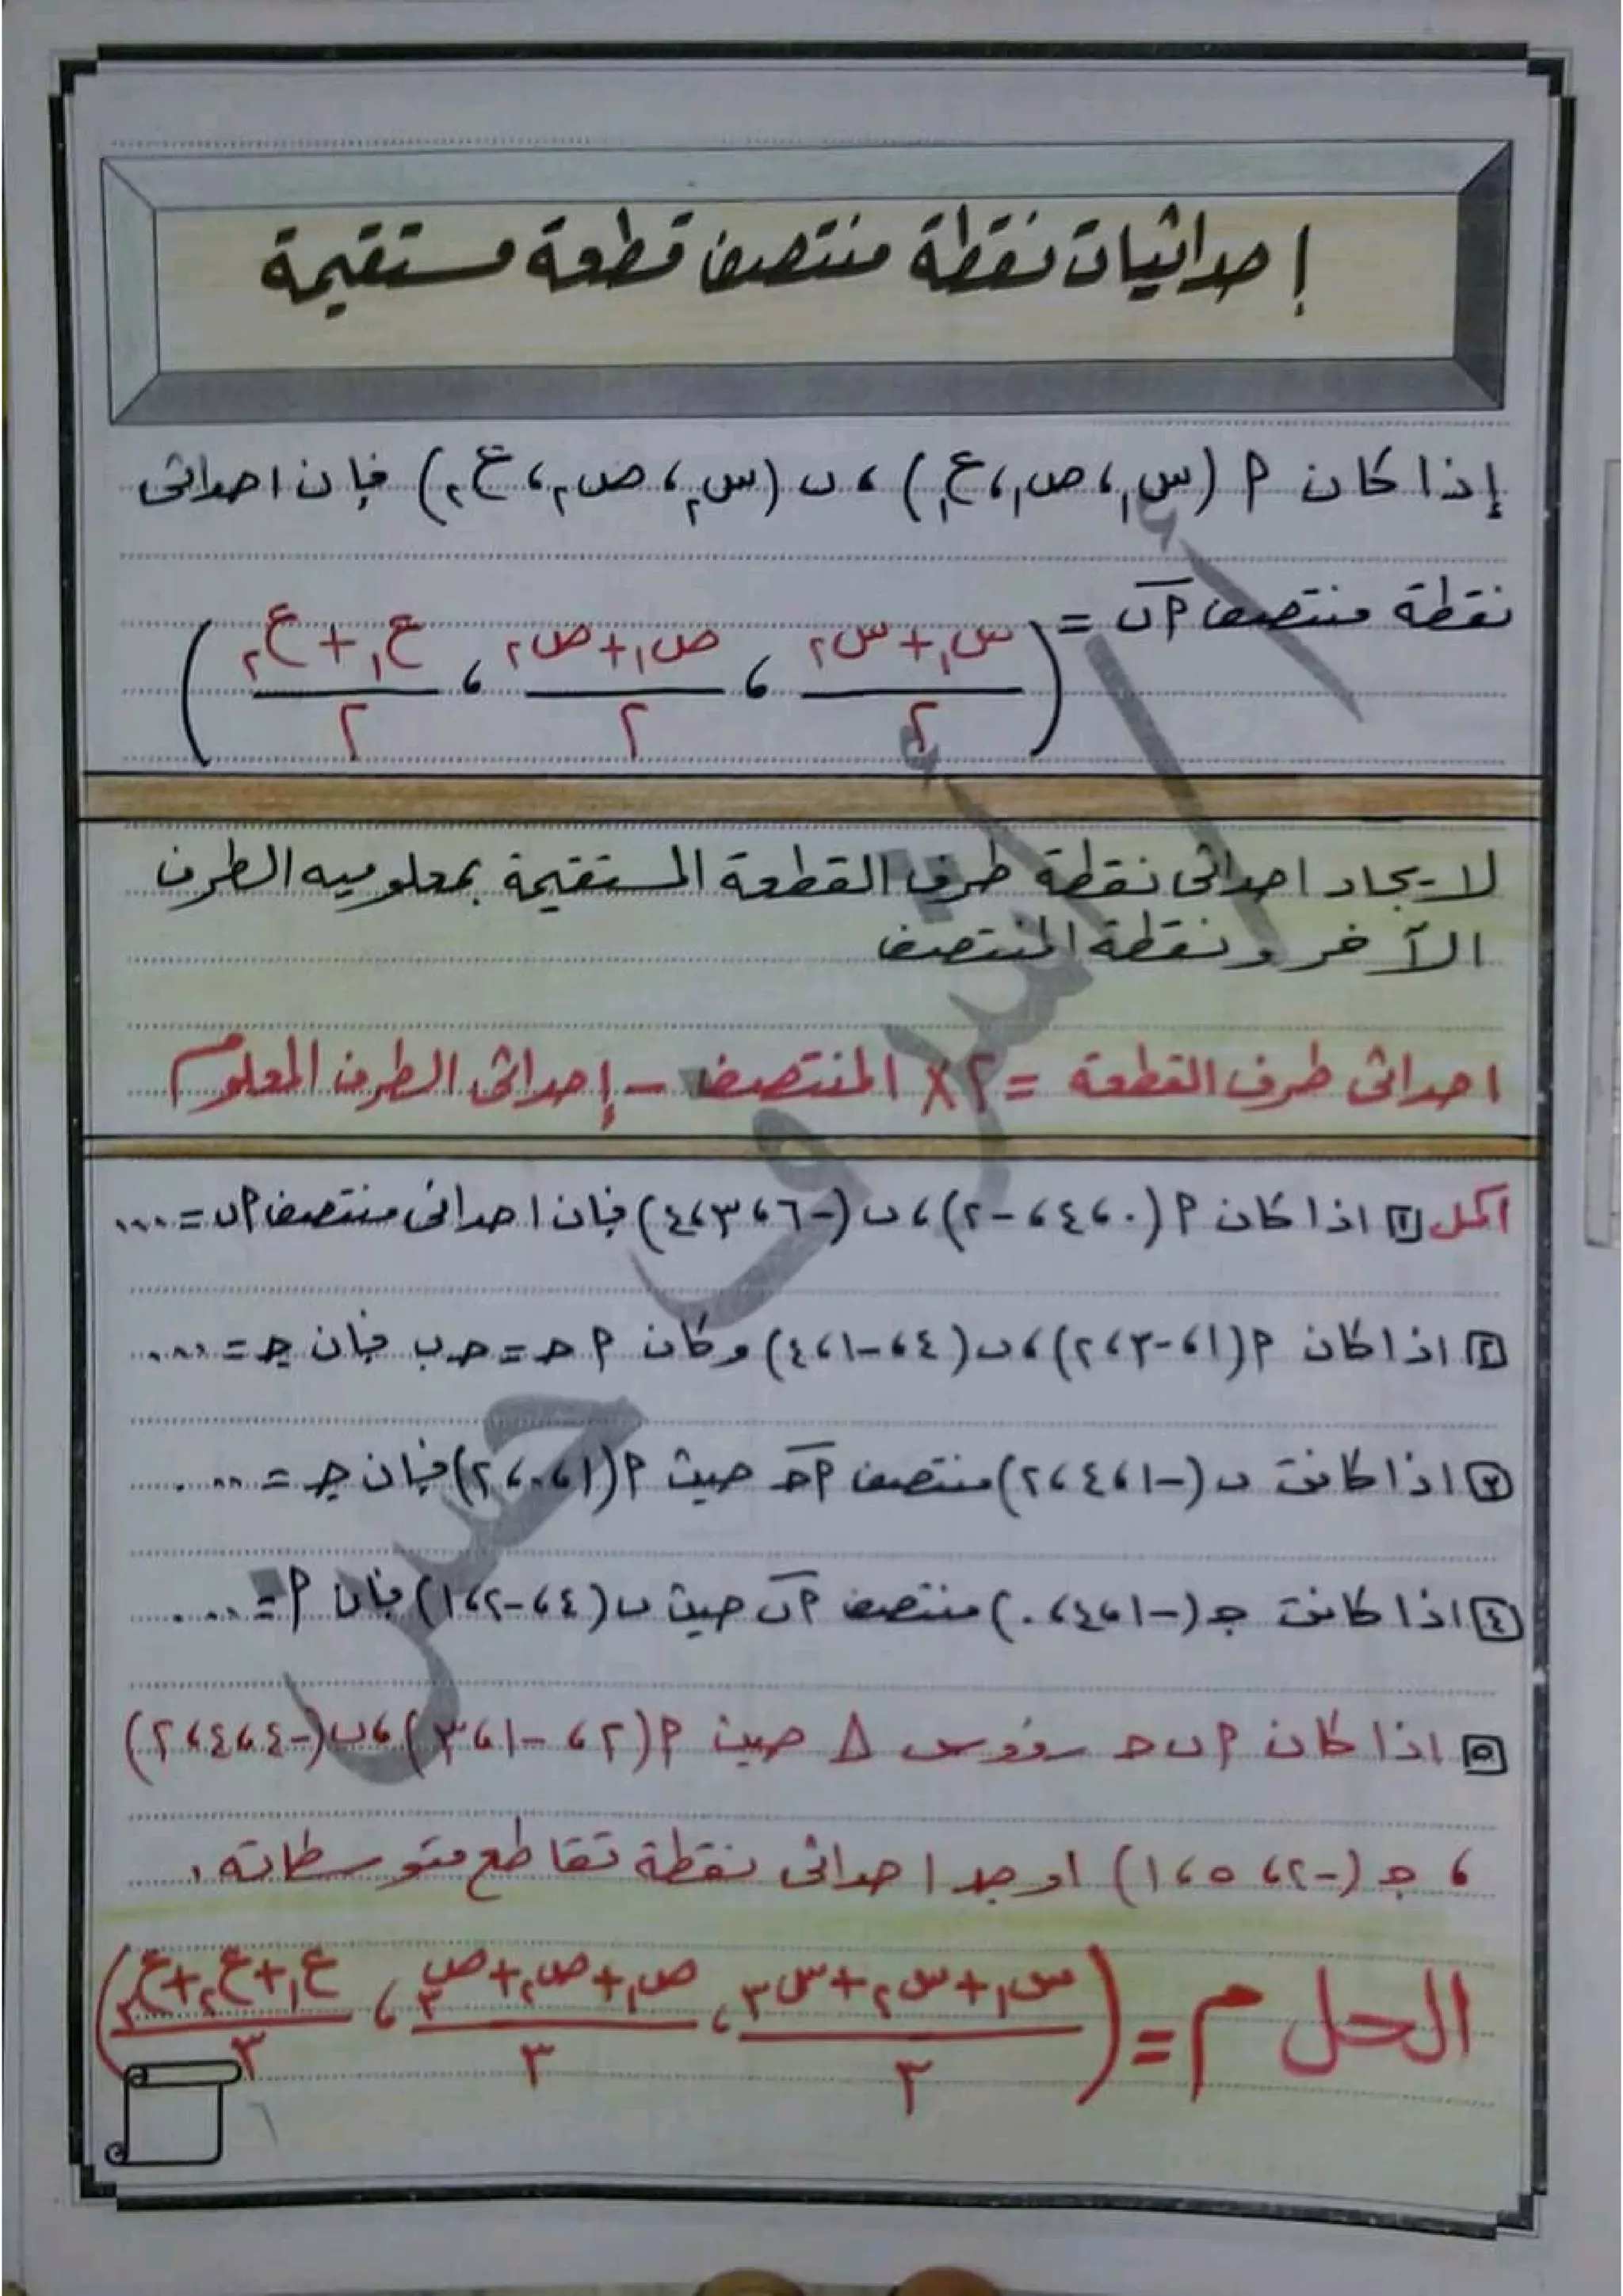 إحداثيات نقطة منتصف قطعة مستقيمة
إذا كان م (س١، ص١، ع١) ، ب (س٢، ص٢، ع٢) فإن احداثى
نقطة منتصف م ب = ( (س١ + س٢)/٢ ، (ص١ + ص٢)/٢ ، (ع١ + ع٢)/٢ )
لايجاد احداثى نقطة طرف القطعة المستقيمة بمعلوميه الطرف
الآخر ونقطة المنتصف
احداثى طرف القطعة = ٢ × المنتصف - إحداثى الطرف المعلوم
اكمل ١ اذا كان م (٠ ، ٤ ، -٢) ، ب (-٦ ، ٣ ، ٤) فإن احداثى منتصف م ب = ...
٢ اذا كان م (١ ، -٣ ، ٢) ، ب (٤ ، -١ ، ٤) وكان م ح = ح ب فإن ج = ....
٣ اذا كانت ب (-١ ، ٤ ، ٢) منتصف م ح حيث م (١ ، ٠ ، ٢) فإن ج = ....
٤ اذا كانت ج (-١ ، ٤ ، ٠) منتصف م ب حيث ب (٤ ، -٢ ، ١) فإن م = ....
٥ اذا كان م ب ح رؤوس Δ حيث م (٢ ، -١ ، ٣) ، ب (-٤ ، ٤ ، ٢)
، ج (-٢ ، ٥ ، ١) اوجد احداثى نقطة تقاطع متوسطاته.
الحل م = ( (س١ + س٢ + س٣)/٣ ، (ص١ + ص٢ + ص٣)/٣ ، (ع١ + ع٢ + ع٣)/٣ )
٦
أ / أشرف حسن